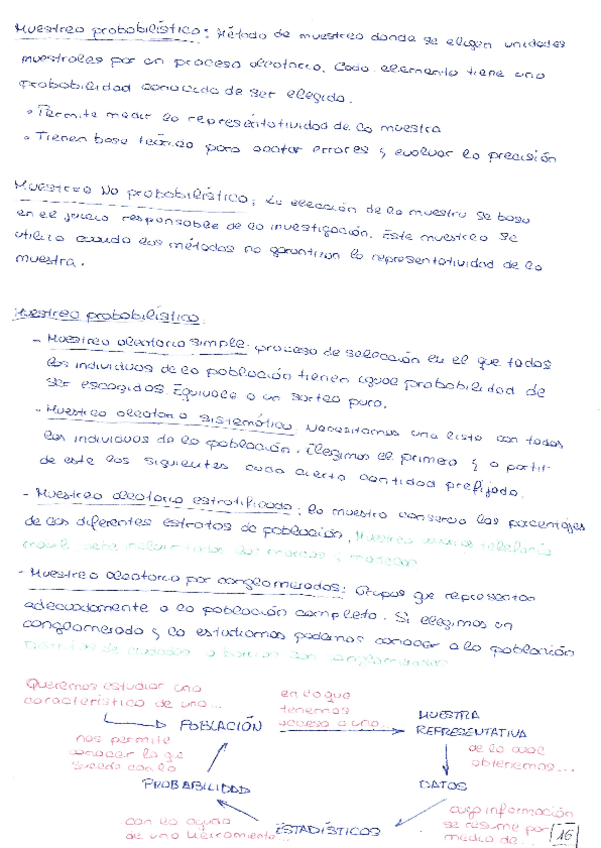 Muestreo probabilístico: Método de muestreo donde se eligen unidades
muestrales por un proceso aleatorio. Cada elemento tiene una
probabilidad conocida de ser elegido.
• Permite medir la representatividad de la muestra
• Tienen base teórica para acotar errores y evaluar la precisión
Muestreo No probabilístico: La elección de la muestra se basa
en el juicio responsable de la investigación. Este muestreo se
utiliza cuando los métodos no garantizan la representatividad de la
muestra.
Muestreo probabilístico
- Muestreo aleatorio simple: proceso de selección en el que todos
los individuos de la población tienen igual probabilidad de
ser escogidos. Equivale a un sorteo puro.
- Muestreo aleatorio sistemático: Necesitamos una lista con todos
los individuos de la población. Elegimos el primero y a partir
de este los siguientes cada cierta cantidad prefijada.
- Muestreo aleatorio estratificado: la muestra conserva los porcentajes
de los diferentes estratos de población.
- Muestreo aleatorio por conglomerados: Grupos que representan
adecuadamente a la población completa. Si elegimos un
conglomerado y lo estudiamos podemos conocer a la población
de ciudades o barrios son conglomerados
Queremos estudiar una
característica de una...
POBLACIÓN
en la que
tenemos
acceso a una...
MUESTRA
REPRESENTATIVA
de la cual
obtenemos...
DATOS
cuya información
se resume por
medio de...
ESTADÍSTICOS
con la ayuda
de una herramienta...
PROBABILIDAD
nos permite
conocer lo que
sucede con la
16